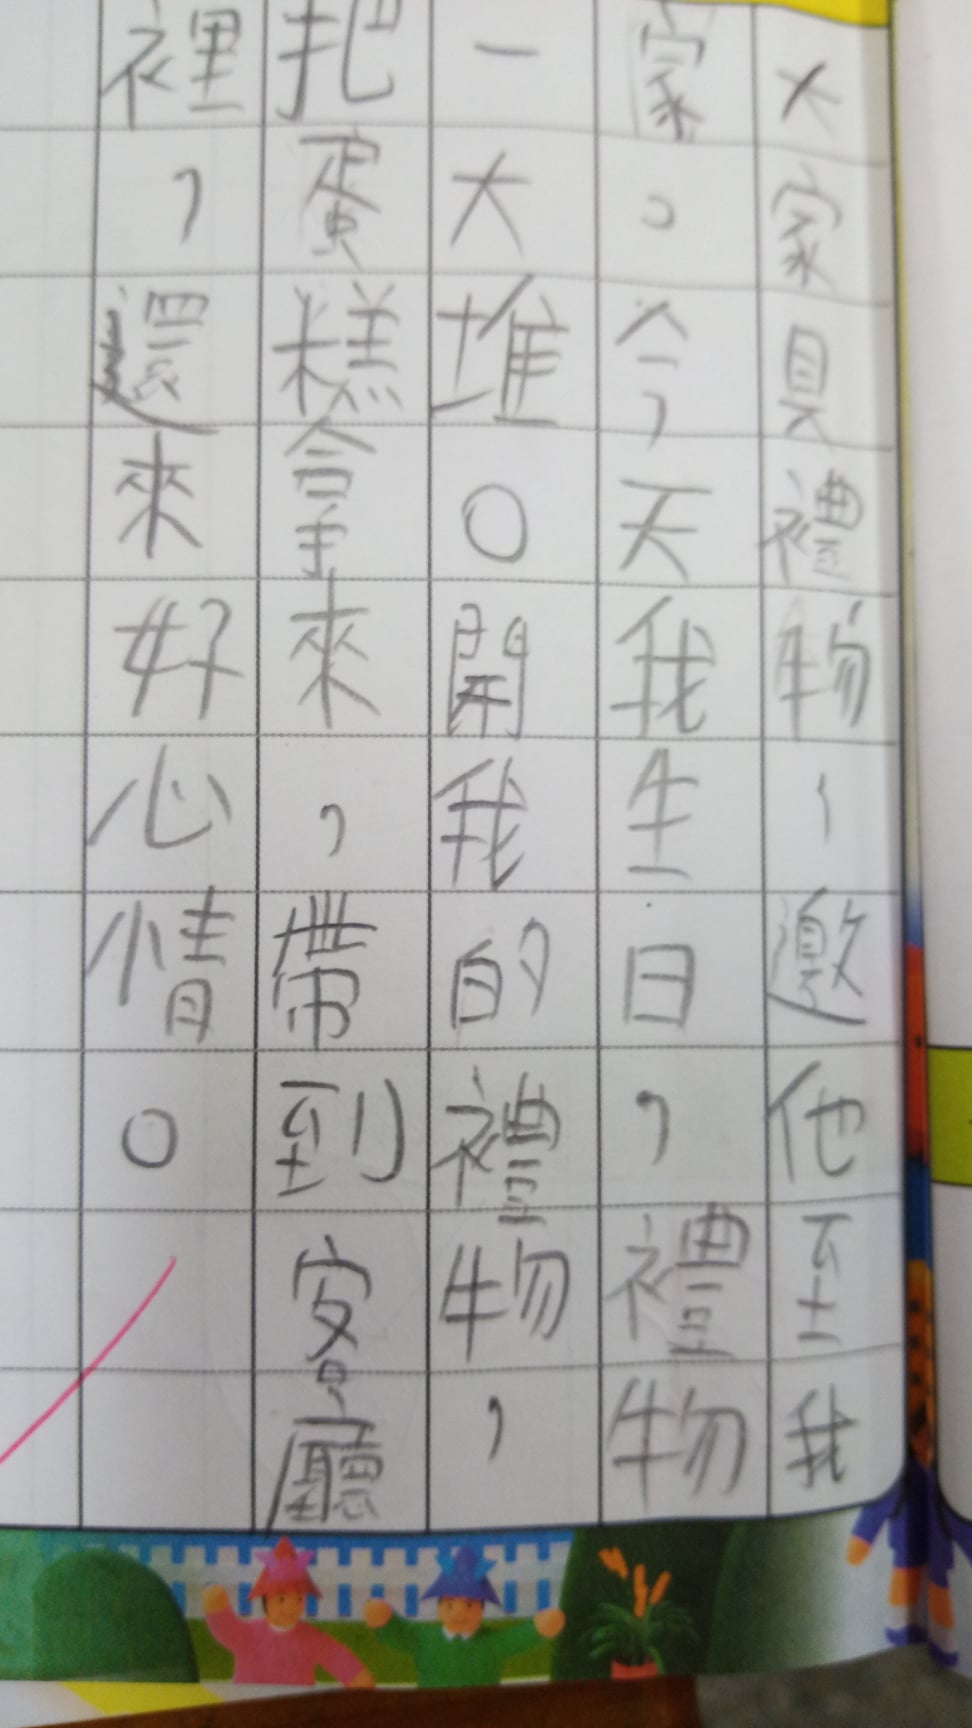 大家具禮物，邀他至我
家，今，天我生日，禮物
一大堆。開我的禮物，
把蛋糕拿來，帶到客廳
裡，還來好心情。